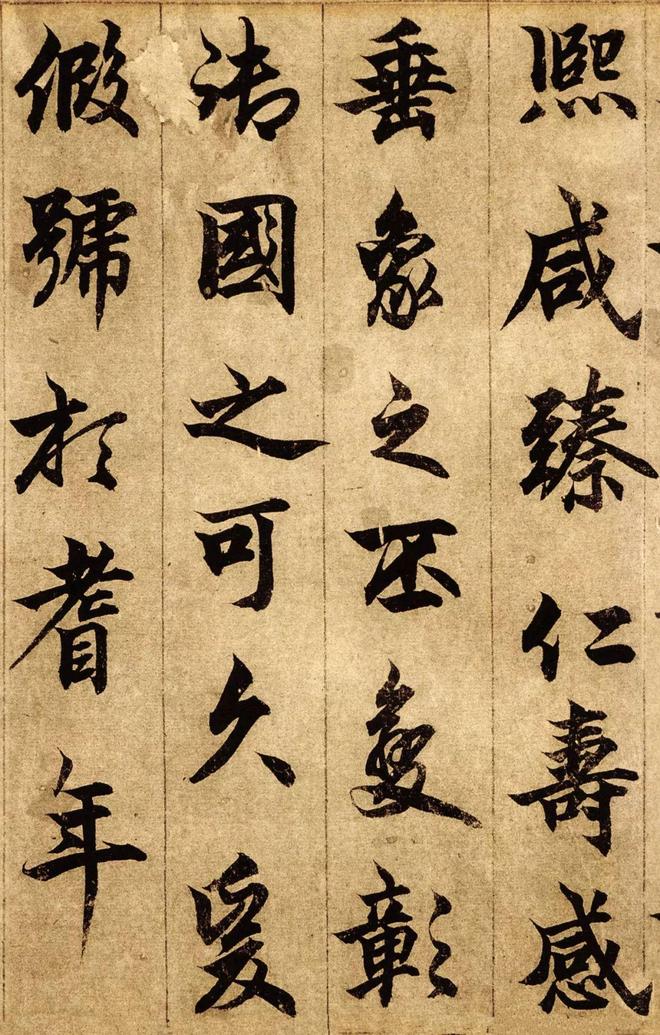 熙咸臻仁壽感
垂象之丕叟彰
國之可久爰
假號於耆年